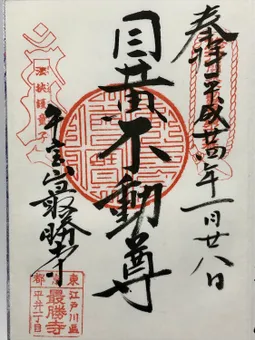 奉拝 平成廿四年一月廿八日
目黄不動尊
牛宝山最勝寺
東京都
江戸川區
平井一丁目
最勝寺